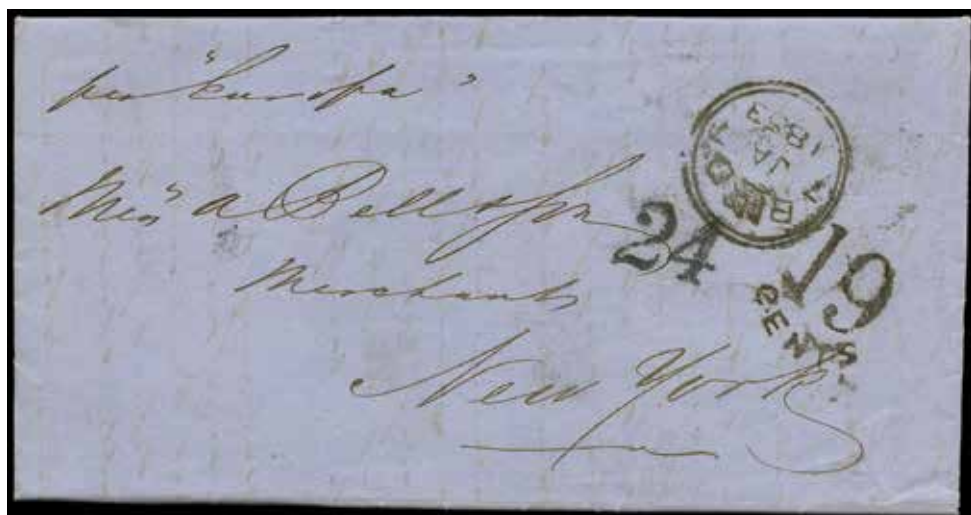 per "Europa"
Mess A Bell & Son
Merchants
New York
JA
1853
24
19
CENTS.